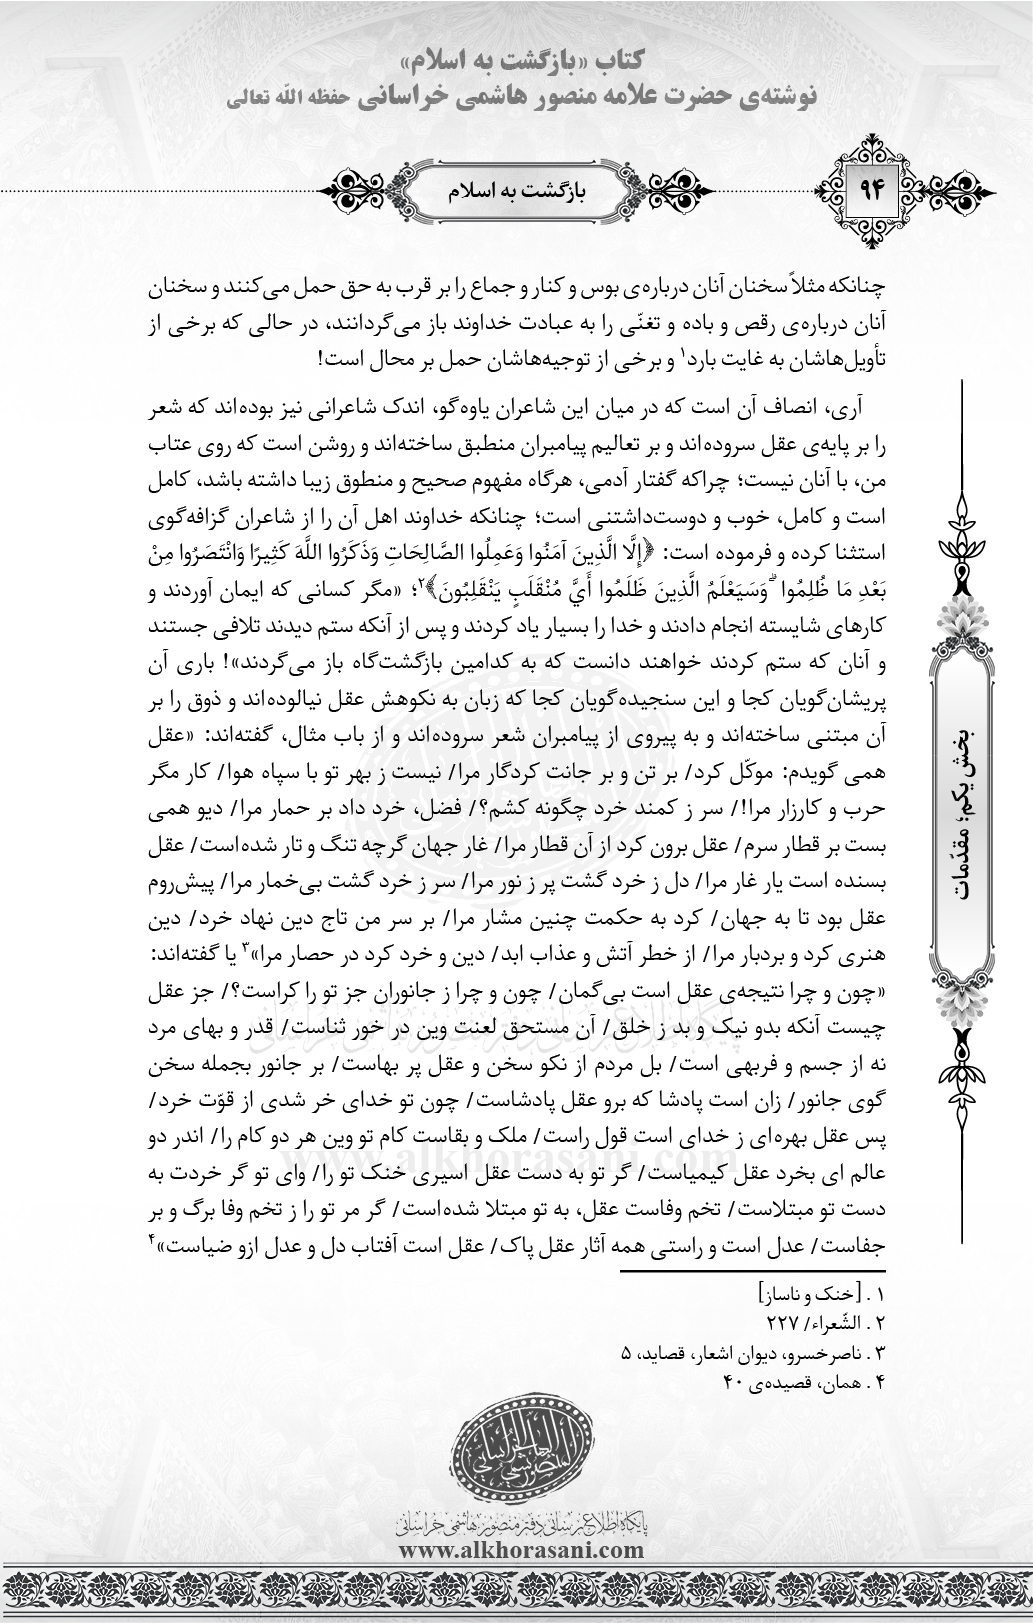 کتاب «بازگشت به اسلام»
نوشته‌ی حضرت علامه منصور هاشمی خراسانی حفظه الله تعالی
۹۴
بازگشت به اسلام
چنانکه مثلاً سخنان آنان درباره‌ی بوس و کنار و جماع را بر قرب به حق حمل می‌کنند و سخنان
آنان درباره‌ی رقص و باده و تغنّی را به عبادت خداوند باز می‌گردانند، در حالی که برخی از
تأویل‌هاشان به غایت بارد۱ و برخی از توجیه‌هاشان حمل بر محال است!
آری، انصاف آن است که در میان این شاعران یاوه‌گو، اندک شاعرانی نیز بوده‌اند که شعر
را بر پایه‌ی عقل سروده‌اند و بر تعالیم پیامبران منطبق ساخته‌اند و روشن است که روی عتاب
من، با آنان نیست؛ چراکه گفتار آدمی، هرگاه مفهوم صحیح و منطوق زیبا داشته باشد، کامل
است و کامل، خوب و دوست‌داشتنی است؛ چنانکه خداوند اهل آن را از شاعران گزافه‌گوی
استثنا کرده و فرموده است: ﴿إِلَّا الَّذِينَ آمَنُوا وَعَمِلُوا الصَّالِحَاتِ وَذَكَرُوا اللَّهَ كَثِيرًا وَانْتَصَرُوا مِنْ
بَعْدِ مَا ظُلِمُوا ۗ وَسَيَعْلَمُ الَّذِينَ ظَلَمُوا أَيَّ مُنْقَلَبٍ يَنْقَلِبُونَ﴾۲؛ «مگر کسانی که ایمان آوردند و
کارهای شایسته انجام دادند و خدا را بسیار یاد کردند و پس از آنکه ستم دیدند تلافی جستند
و آنان که ستم کردند خواهند دانست که به کدامین بازگشت‌گاه باز می‌گردند»! باری آن
پریشان‌گویان کجا و این سنجیده‌گویان کجا که زبان به نکوهش عقل نیالوده‌اند و ذوق را بر
آن مبتنی ساخته‌اند و به پیروی از پیامبران شعر سروده‌اند و از باب مثال، گفته‌اند: «عقل
همی گویدم: موکّل کرد/ بر تن و بر جانت کردگار مرا/ نیست ز بهر تو با سپاه هوا/ کار مگر
حرب و کارزار مرا!/ سر ز کمند خرد چگونه کشم؟/ فضل، خرد داد بر حمار مرا/ دیو همی
بست بر قطار سرم/ عقل برون کرد از آن قطار مرا/ غار جهان گرچه تنگ و تار شده‌است/ عقل
بسنده است یار غار مرا/ دل ز خرد گشت پر ز نور مرا/ سر ز خرد گشت بی‌خمار مرا/ پیش‌روم
عقل بود تا به جهان/ کرد به حکمت چنین مشار مرا/ بر سر من تاج دین نهاد خرد/ دین
هنری کرد و بردبار مرا/ از خطر آتش و عذاب ابد/ دین و خرد کرد در حصار مرا»۳ یا گفته‌اند:
«چون و چرا نتیجه‌ی عقل است بی‌گمان/ چون و چرا ز جانوران جز تو را کراست؟/ جز عقل
چیست آنکه بدو نیک و بد ز خلق/ آن مستحق لعنت وین در خور ثناست/ قدر و بهای مرد
نه از جسم و فربهی است/ بل مردم از نکو سخن و عقل پر بهاست/ بر جانور بجمله سخن
گوی جانور/ زان است پادشا که برو عقل پادشاست/ چون تو خدای خر شدی از قوّت خرد/
پس عقل بهره‌ای ز خدای است قول راست/ ملک و بقاست کام تو وین هر دو کام را/ اندر دو
عالم ای بخرد عقل کیمیاست/ گر تو به دست عقل اسیری خنک تو را/ وای تو گر خردت به
دست تو مبتلاست/ تخم وفاست عقل، به تو مبتلا شده‌است/ گر مر تو را ز تخم وفا برگ و بر
جفاست/ عدل است و راستی همه آثار عقل پاک/ عقل است آفتاب دل و عدل ازو ضیاست»۴
۱ . [خنک و ناساز]
۲ . الشّعراء/ ۲۲۷
۳ . ناصرخسرو، دیوان اشعار، قصاید، ۵
۴ . همان، قصیده‌ی ۴۰
بخش یکم؛ مقدّمات
پایگاه اطلاع‌رسانی دفتر منصور هاشمی خراسانی
www.alkhorasani.com